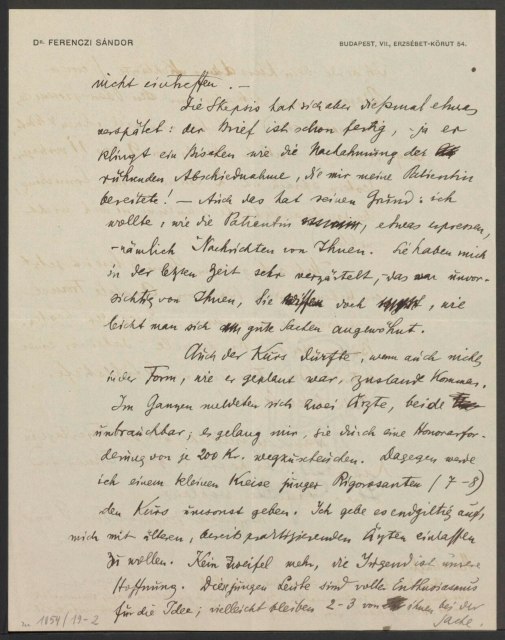 Dr. FERENCZI SÁNDOR
BUDAPEST, VII., ERZSÉBET-KÖRUT 54.
nicht eintreffen. —
Die Skepsis hat sich aber diesmal etwas
verspätet: der Brief ist schon fertig, — ja er
klingt ein Bischen wie die Nachahmung der
rührenden Abschiednahme, die mir meine Patientin
bereitete! — Auch das hat seinen Grund: ich
wollte, wie die Patientin, etwas erpressen,
— nämlich Nachrichten von Ihnen. Sie haben mich
in der letzten Zeit sehr verzärtelt, — das war unvor-
sichtig von Ihnen, Sie wissen doch, wie
leicht man sich an gute Sachen angewöhnt.
Auch der Kurs dürfte, wenn auch nicht
in der Form, wie er geplant war, zustande kommen.
Im Ganzen meldeten sich zwei Ärzte, beide
unbrauchbar; es gelang mir, sie durch eine Honorarfor-
derung von je 200 Kr. wegzuscheuchen. Dagegen werde
ich einem kleinen Kreise junger Rigorosanten (7-8)
den Kurs umsonst geben. Ich gebe es endgiltig auf,
mich mit älteren, bereits praktizierenden Ärzten einlassen
zu wollen. Kein Zweifel mehr, die Jugend ist unsere
Hoffnung. Diese jungen Leute sind voller Enthusiasmus
für die Idee; vielleicht bleiben 2-3 von ihnen bei der
Sache.
1054/19-2